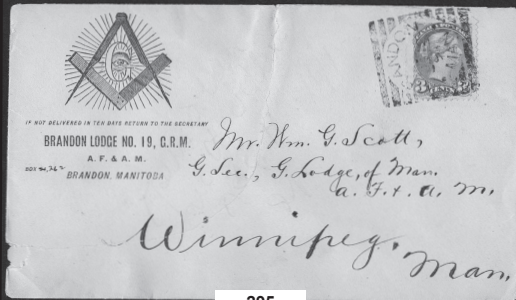 IF NOT DELIVERED IN TEN DAYS RETURN TO THE SECRETARY
BRANDON LODGE NO. 19, G.R.M.
A. F. & A. M.
BOX
BRANDON, MANITOBA
Mr. Wm. G. Scott,
G. Sec., G. Lodge, of Man.
A. F. & A. M.
Winnipeg,
Man.
3 3